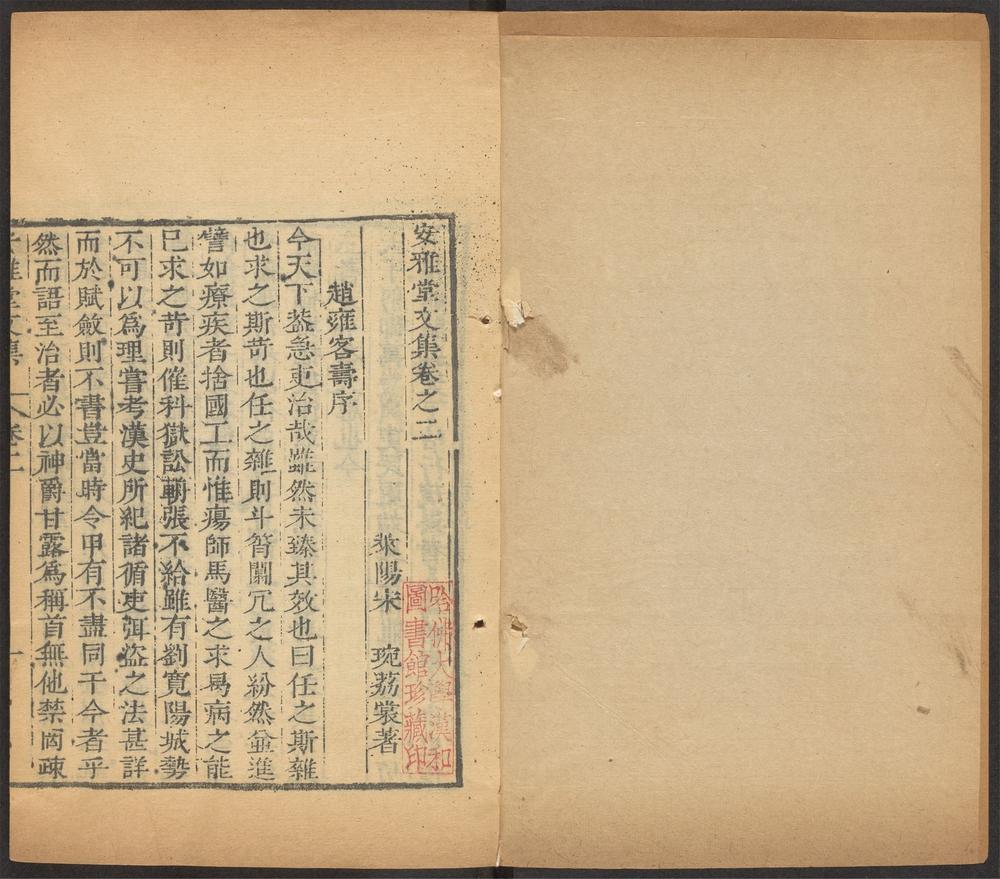 安雅堂文集卷之二
萊陽宋 琬荔裳著
趙雍客壽序
今天下葢急吏治哉雖然未臻其效也曰任之斯雜
也求之斯苛也任之雜則斗筲闒冗之人紛然並進
譬如療疾者捨國工而惟瘍師馬醫之求曷病之能
已求之苛則催科獄訟輈張不給雖有劉寬陽城勢
不可以爲理嘗考漢史所紀諸循吏弭盜之法甚詳
而於賦斂則不書豈當時令甲有不盡同于今者乎
然而語至治者必以神爵甘露爲稱首無他禁罔疎
雅堂文集 卷二 一
哈佛大學漢和
圖書館珍藏印